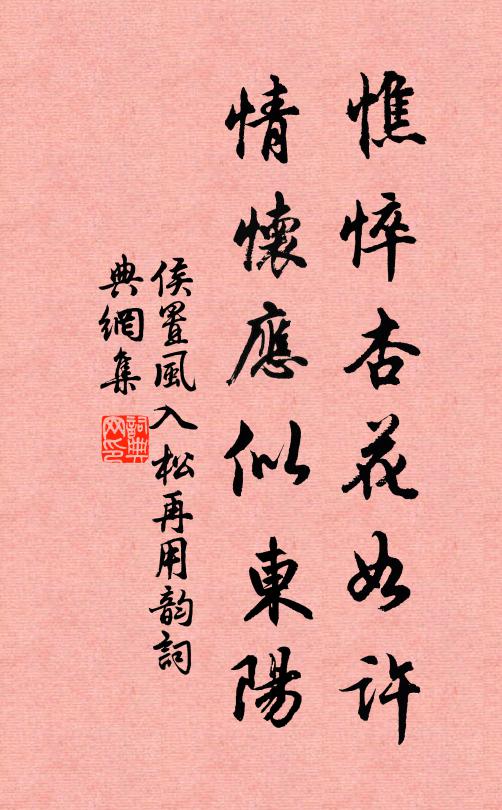 憔悴杏花如許
情懷應似東陽
侯置風入松再用韵詞
典網集
詞典網印